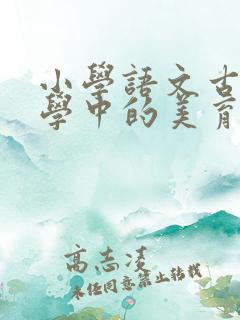 小學語文古
學中的美育
高志凌
未經同意禁止轉載